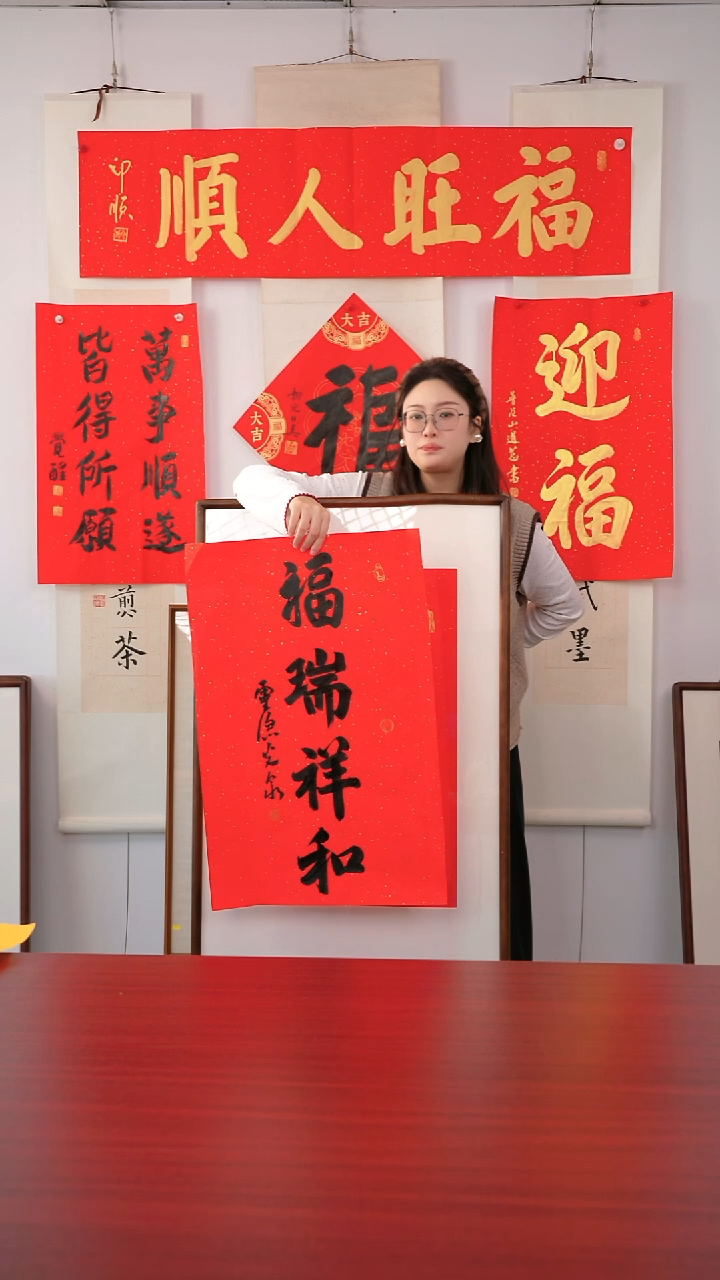 福旺人順
印順
萬事順遂
皆得所願
覺醒
大吉
大吉
福
迎福
福瑞祥和
煎茶
墨